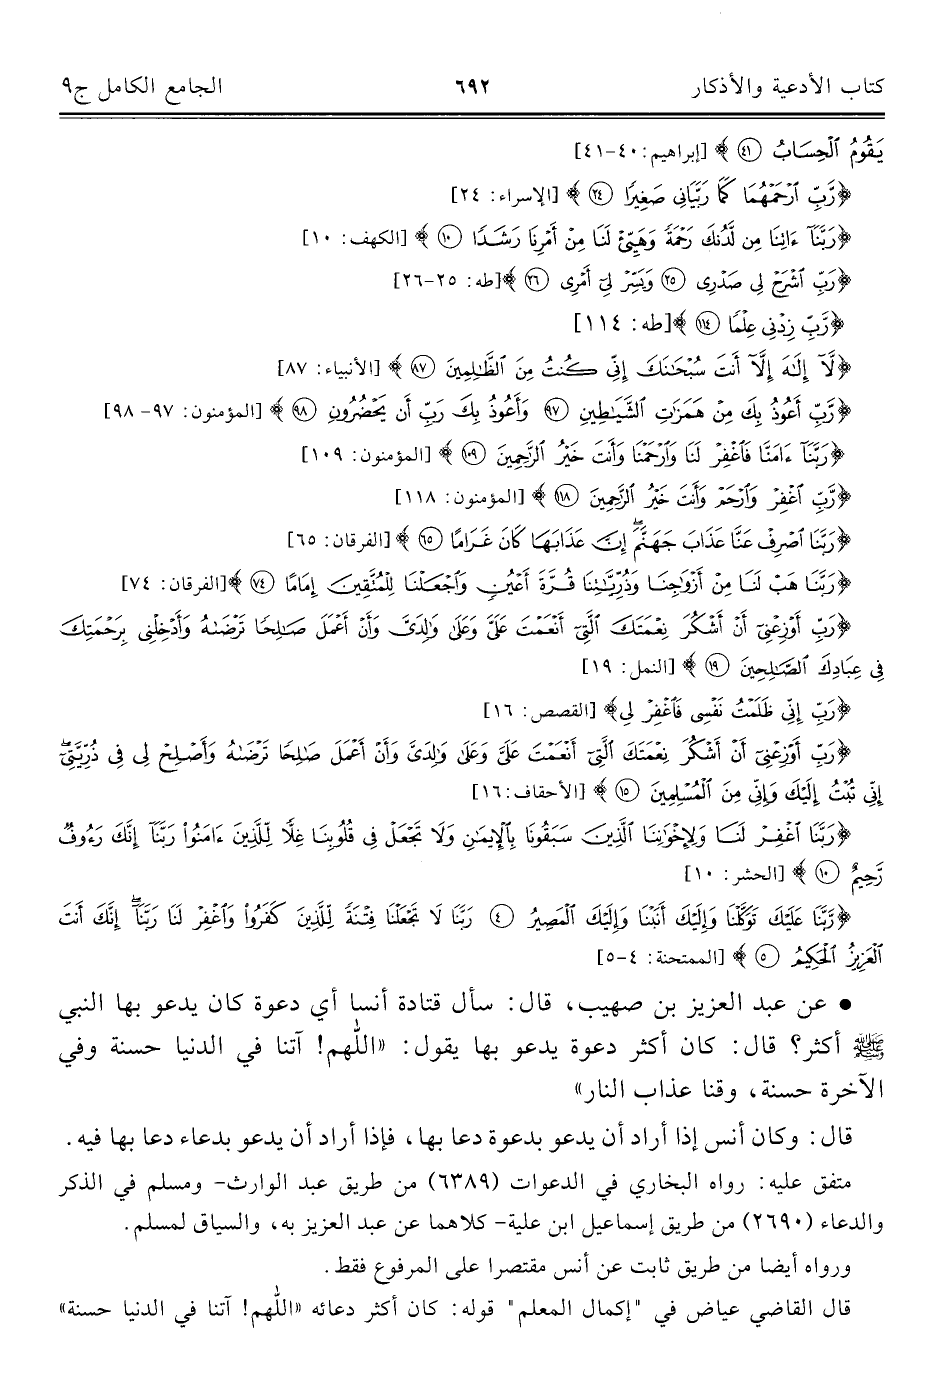 كتاب الأدعية والأذكار ٦٩٢ الجامع الكامل ج٩
يَقُومُ ٱلْحِسَابُ ۝٤١ ﴾ [إبراهيم: ٤٠-٤١]
﴿رَّبِّ ٱرْحَمْهُمَا كَمَا رَبَّيَانِى صَغِيرًا ۝٢٤ ﴾ [الإسراء: ٢٤]
﴿رَبَّنَآ ءَاتِنَا مِن لَّدُنكَ رَحْمَةً وَهَيِّئْ لَنَا مِنْ أَمْرِنَا رَشَدًا ۝١٠ ﴾ [الكهف: ١٠]
﴿رَبِّ ٱشْرَحْ لِى صَدْرِى ۝٢٥ وَيَسِّرْ لِىٓ أَمْرِى ۝٢٦ ﴾[طه: ٢٥-٢٦]
﴿رَّبِّ زِدْنِى عِلْمًا ۝١١٤ ﴾[طه: ١١٤]
﴿لَّآ إِلَٰهَ إِلَّآ أَنتَ سُبْحَٰنَكَ إِنِّى كُنتُ مِنَ ٱلظَّٰلِمِينَ ۝٨٧ ﴾ [الأنبياء: ٨٧]
﴿رَّبِّ أَعُوذُ بِكَ مِنْ هَمَزَٰتِ ٱلشَّيَٰطِينِ ۝٩٧ وَأَعُوذُ بِكَ رَبِّ أَن يَحْضُرُونِ ۝٩٨ ﴾ [المؤمنون: ٩٧- ٩٨]
﴿رَبَّنَآ ءَامَنَّا فَٱغْفِرْ لَنَا وَٱرْحَمْنَا وَأَنتَ خَيْرُ ٱلرَّٰحِمِينَ ۝١٠٩ ﴾ [المؤمنون: ١٠٩]
﴿رَّبِّ ٱغْفِرْ وَٱرْحَمْ وَأَنتَ خَيْرُ ٱلرَّٰحِمِينَ ۝١١٨ ﴾ [المؤمنون: ١١٨]
﴿رَبَّنَا ٱصْرِفْ عَنَّا عَذَابَ جَهَنَّمَ ۖ إِنَّ عَذَابَهَا كَانَ غَرَامًا ۝٦٥ ﴾ [الفرقان: ٦٥]
﴿رَبَّنَا هَبْ لَنَا مِنْ أَزْوَٰجِنَا وَذُرِّيَّٰتِنَا قُرَّةَ أَعْيُنٍ وَٱجْعَلْنَا لِلْمُتَّقِينَ إِمَامًا ۝٧٤ ﴾[الفرقان: ٧٤]
﴿رَبِّ أَوْزِعْنِىٓ أَنْ أَشْكُرَ نِعْمَتَكَ ٱلَّتِىٓ أَنْعَمْتَ عَلَىَّ وَعَلَىٰ وَٰلِدَىَّ وَأَنْ أَعْمَلَ صَٰلِحًا تَرْضَىٰهُ وَأَدْخِلْنِى بِرَحْمَتِكَ
فِى عِبَادِكَ ٱلصَّٰلِحِينَ ۝١٩ ﴾ [النمل: ١٩]
﴿رَبِّ إِنِّى ظَلَمْتُ نَفْسِى فَٱغْفِرْ لِى﴾ [القصص: ١٦]
﴿رَبِّ أَوْزِعْنِىٓ أَنْ أَشْكُرَ نِعْمَتَكَ ٱلَّتِىٓ أَنْعَمْتَ عَلَىَّ وَعَلَىٰ وَٰلِدَىَّ وَأَنْ أَعْمَلَ صَٰلِحًا تَرْضَىٰهُ وَأَصْلِحْ لِى فِى ذُرِّيَّتِىٓ ۖ
إِنِّى تُبْتُ إِلَيْكَ وَإِنِّى مِنَ ٱلْمُسْلِمِينَ ۝١٥ ﴾ [الأحقاف:١٦]
﴿رَبَّنَا ٱغْفِرْ لَنَا وَلِإِخْوَٰنِنَا ٱلَّذِينَ سَبَقُونَا بِٱلْإِيمَٰنِ وَلَا تَجْعَلْ فِى قُلُوبِنَا غِلًّا لِّلَّذِينَ ءَامَنُوا۟ رَبَّنَآ إِنَّكَ رَءُوفٌ
رَّحِيمٌ ۝١٠ ﴾ [الحشر: ١٠]
﴿رَّبَّنَا عَلَيْكَ تَوَكَّلْنَا وَإِلَيْكَ أَنَبْنَا وَإِلَيْكَ ٱلْمَصِيرُ ۝٤ رَبَّنَا لَا تَجْعَلْنَا فِتْنَةً لِّلَّذِينَ كَفَرُوا۟ وَٱغْفِرْ لَنَا رَبَّنَآ ۖ إِنَّكَ أَنتَ
ٱلْعَزِيزُ ٱلْحَكِيمُ ۝٥ ﴾ [الممتحنة: ٤-٥]
• عن عبد العزيز بن صهيب، قال: سأل قتادة أنسا أي دعوة كان يدعو بها النبي
ﷺ أكثر؟ قال: كان أكثر دعوة يدعو بها يقول: «اللّٰهم! آتنا في الدنيا حسنة وفي
الآخرة حسنة، وقنا عذاب النار»
قال: وكان أنس إذا أراد أن يدعو بدعوة دعا بها، فإذا أراد أن يدعو بدعاء دعا بها فيه.
متفق عليه: رواه البخاري في الدعوات (٦٣٨٩) من طريق عبد الوارث- ومسلم في الذكر
والدعاء (٢٦٩٠) من طريق إسماعيل ابن علية- كلاهما عن عبد العزيز به، والسياق لمسلم.
ورواه أيضا من طريق ثابت عن أنس مقتصرا على المرفوع فقط.
قال القاضي عياض في "إكمال المعلم" قوله: كان أكثر دعائه «اللّٰهم! آتنا في الدنيا حسنة»